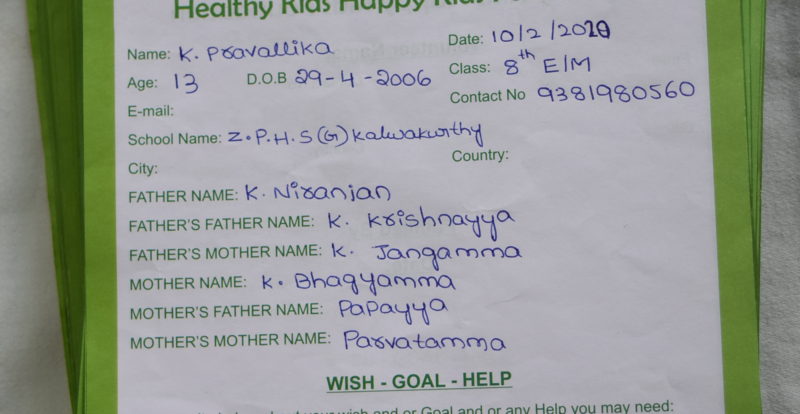 Healthy Kids Happy Kids
Name: K. Pravallika Date: 10/2/2020
Age: 13 D.O.B 29-4-2006 Class: 8th E/M
E-mail: Contact No 9381980560
School Name: Z.P.H.S(G) Kalwakurthy
City: Country:
FATHER NAME: K. Niranjan
FATHER'S FATHER NAME: K. Krishnayya
FATHER'S MOTHER NAME: K. Jangamma
MOTHER NAME: K. Bhagyamma
MOTHER'S FATHER NAME: Papayya
MOTHER'S MOTHER NAME: Parvatamma
WISH - GOAL - HELP
your wish and or Goal and or any Help you may need: